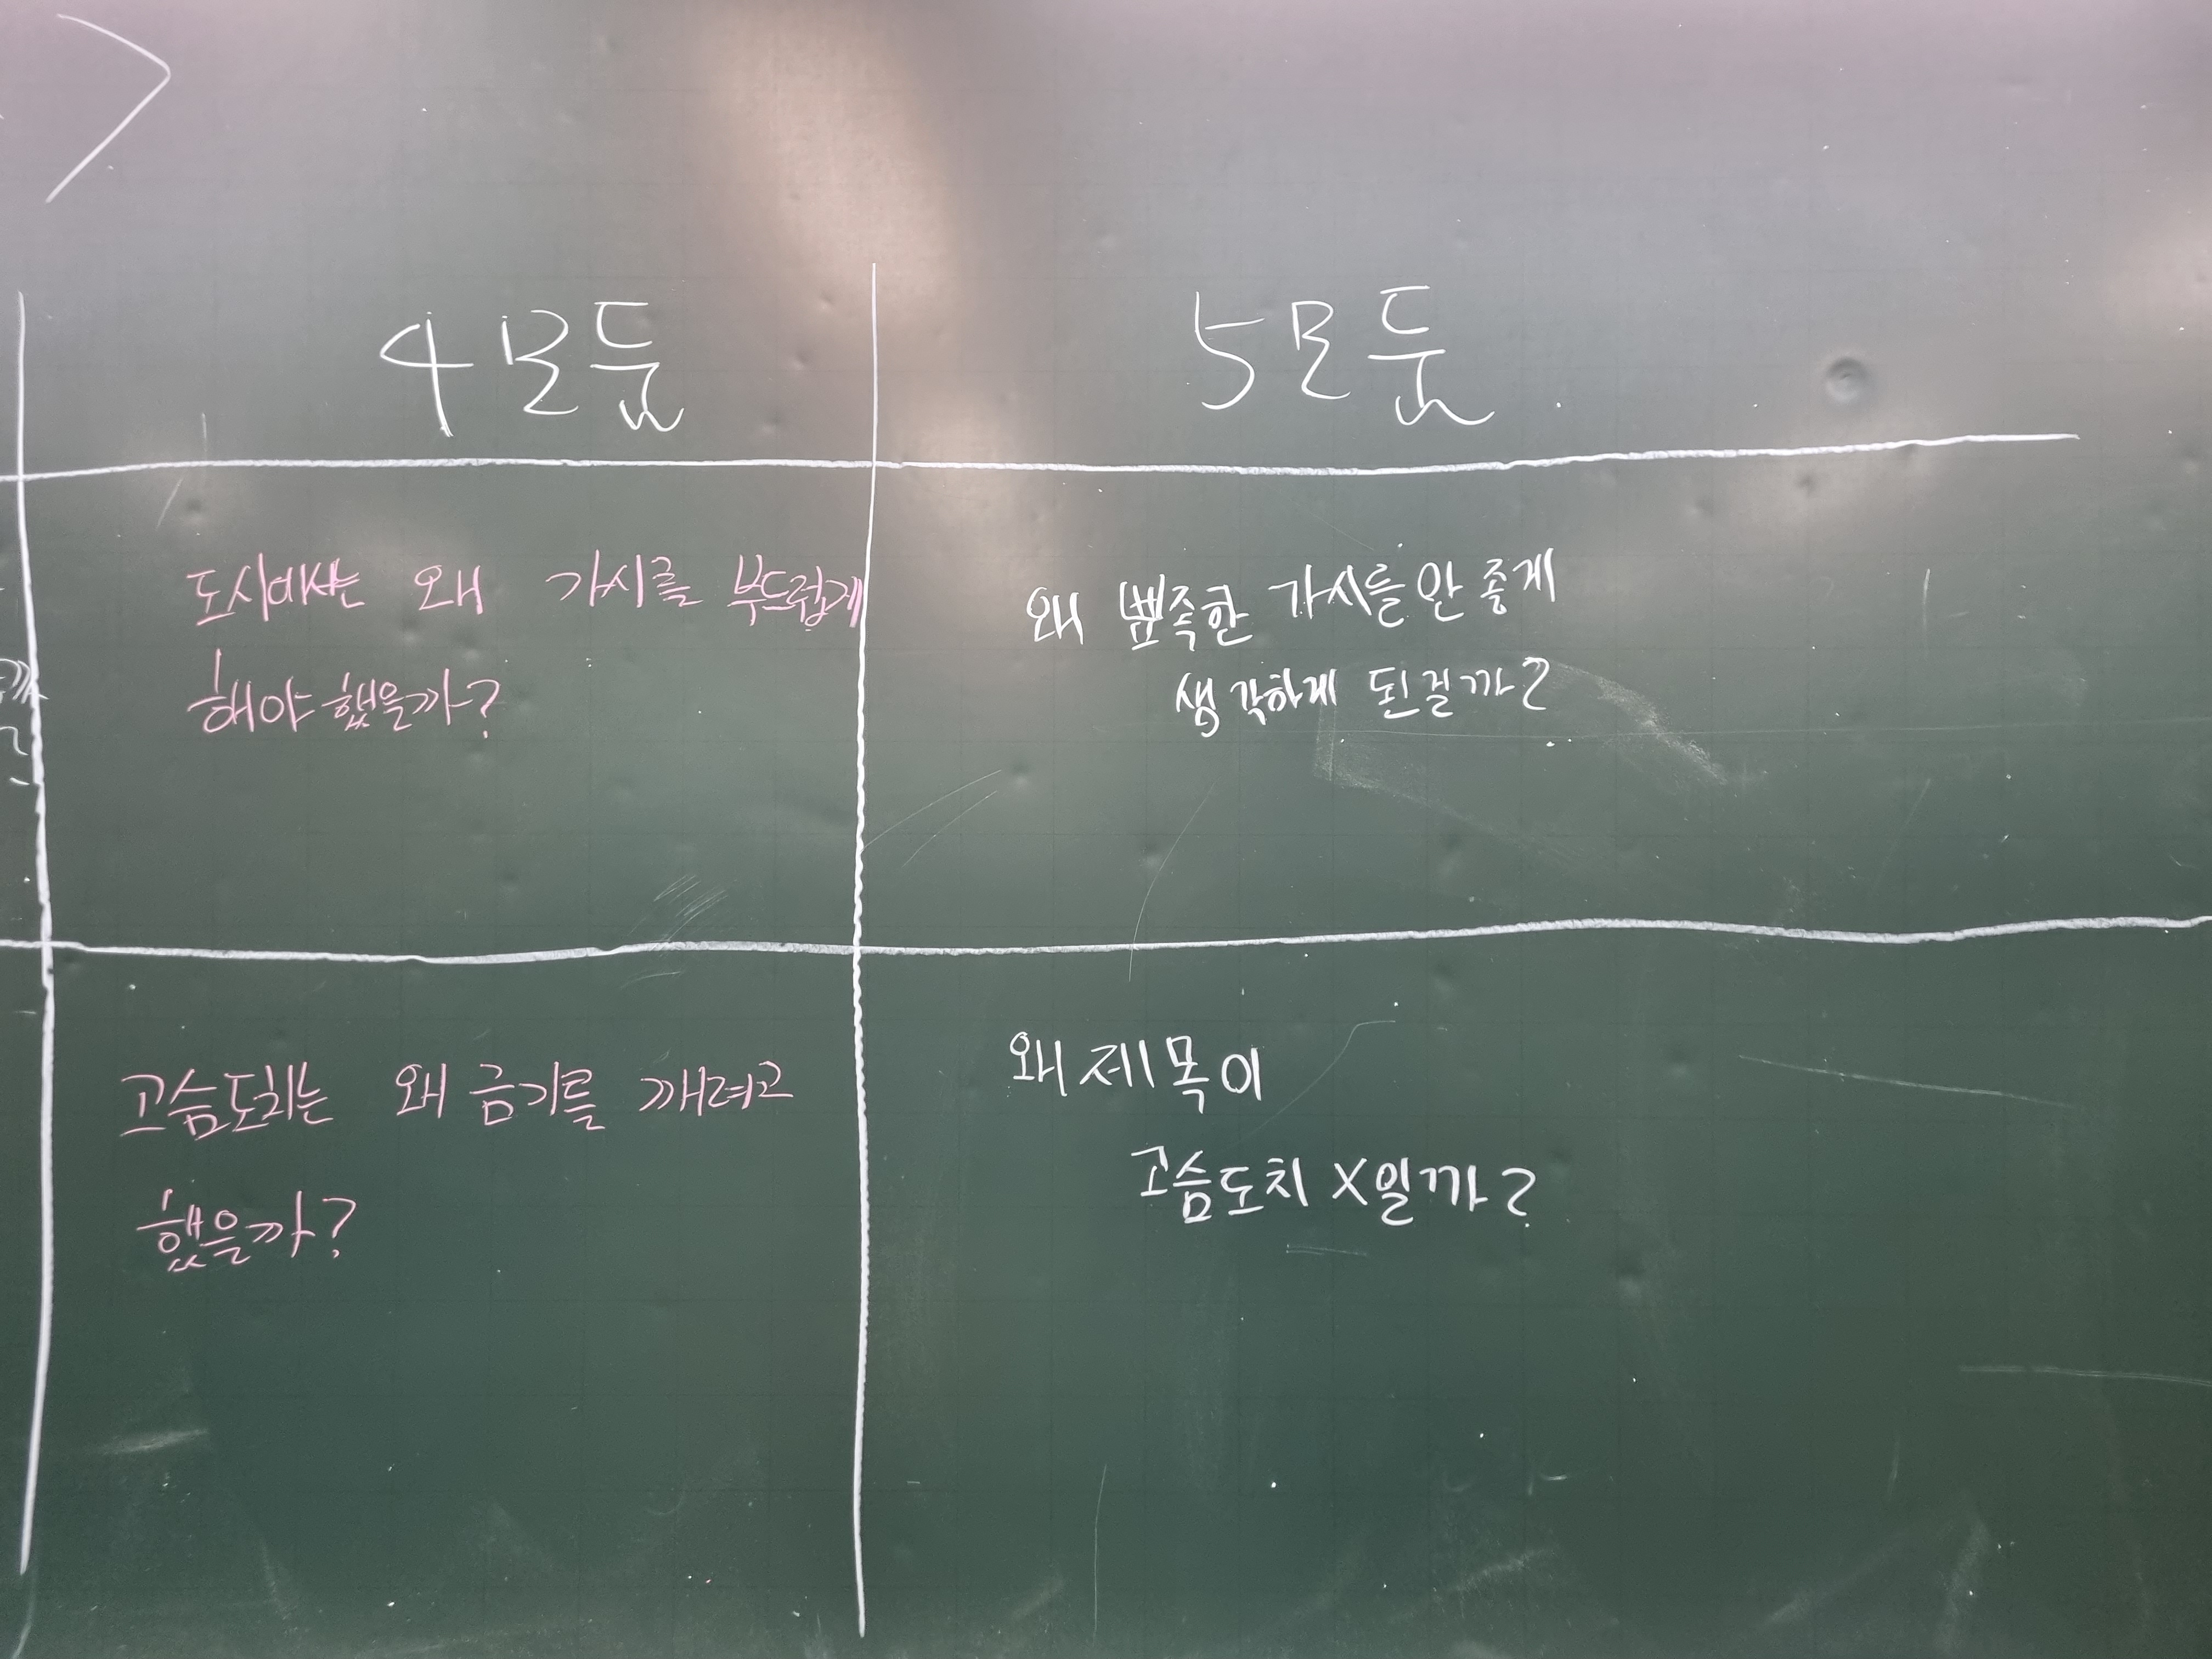 4모둠
5모둠
도시에서는 왜 가시를 부드럽게
해야 했을까?
왜 뾰족한 가시를 안 좋게
생각하게 된걸까?
고슴도치는 왜 금기를 깨려고
했을까?
왜 제목이
고슴도치 X일까?